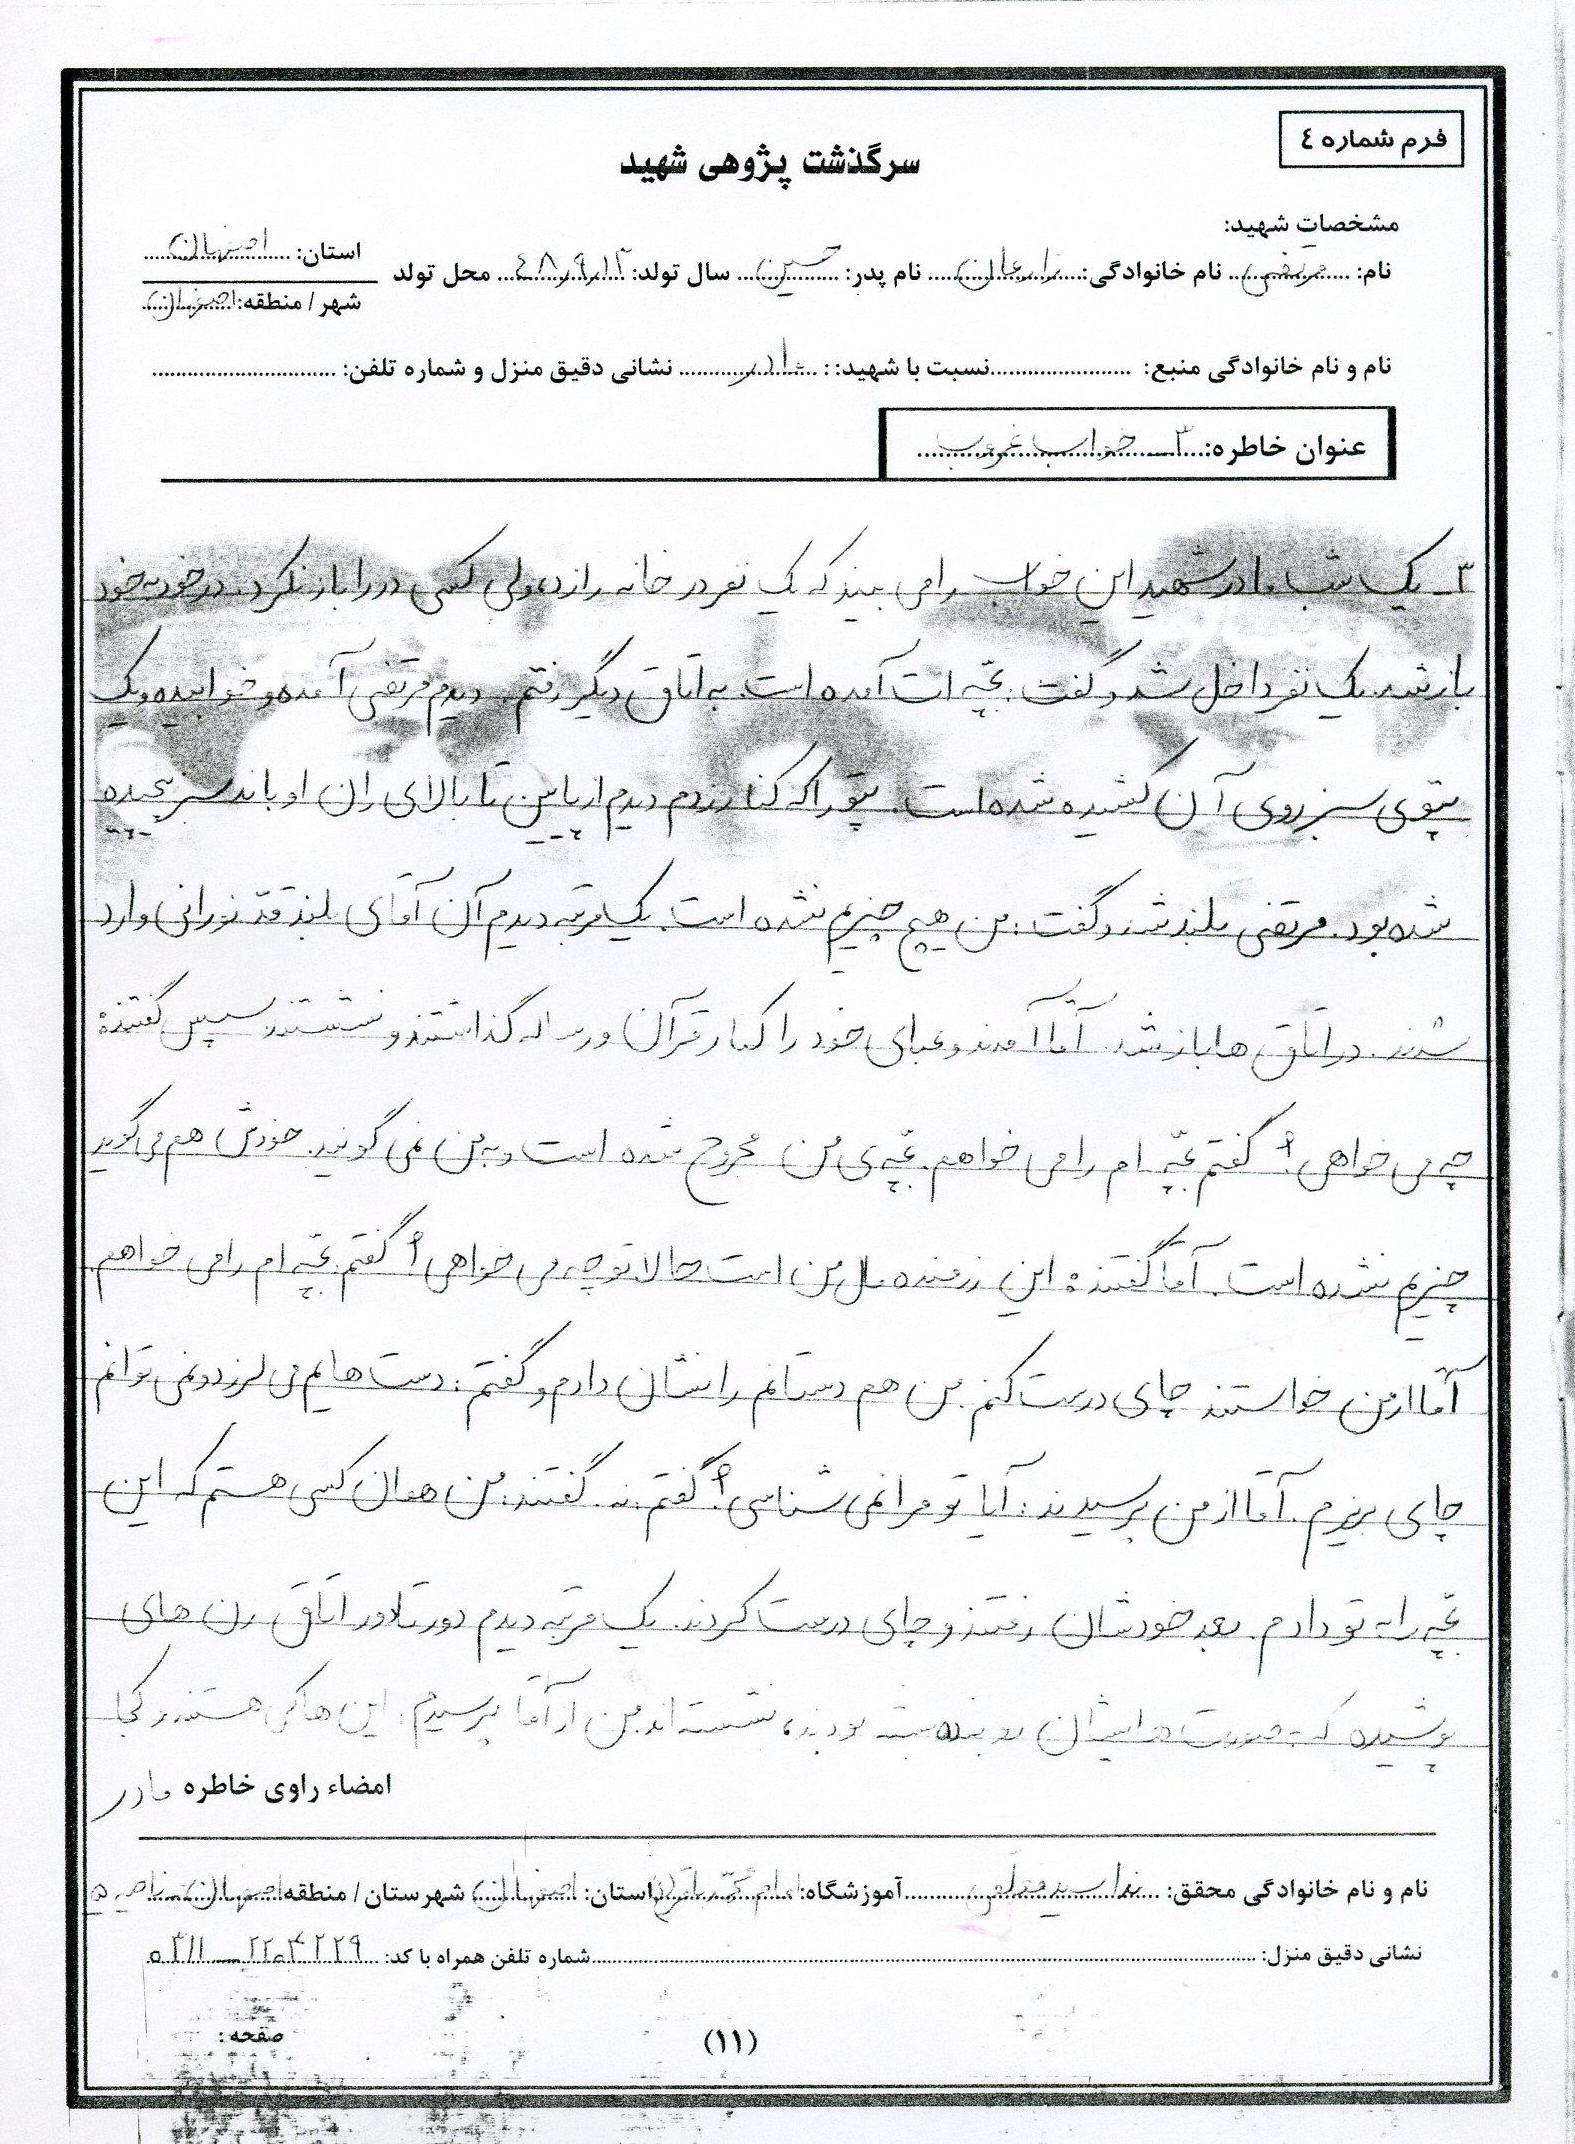 فرم شماره ٤
سرگذشت پژوهی شهید
مشخصات شهید:
نام: مرتضی نام خانوادگی: زارعان نام پدر: حسین سال تولد: ٤٨٫٩٫١٢ محل تولد
استان: اصفهان
شهر / منطقه: اصفهان
نام و نام خانوادگی منبع: نسبت با شهید: : مادر نشانی دقیق منزل و شماره تلفن:
عنوان خاطره: ٣ـ خواب غروب
٣ـ یک شب مادر شهید این خواب را می بیند که یک نفر در خانه را زد، ولی کسی در را باز نکرد. در خود به خود
باز شد. یک نفر داخل شد و گفت: بچّه ات آمده است. به اتاق دیگر رفتم. دیدم مرتضی آمده و خوابیده و یک
پتوی سبز روی آن کشیده شده است. پتو را که کنار زدم دیدم از پایین تا بالای ران او باند سبز پیچیده
شده بود. مرتضی بلند شد و گفت: من هیچ چیزیم نشده است. یک مرتبه دیدم آن آقای بلند قدّ نورانی وارد
شدند. در اتاق ها باز شد. آقا آمدند و عبای خود را کنار قرآن و رساله گذاشتند و نشستند سپس گفتند:
چه می خواهی؟ گفتم بچّه ام را می خواهم. بچّه ی من مجروح شده است و به من نمی گویند. خودش هم می گوید
چیزیم نشده است. آقا گفتند: این رزمنده مال من است حالا تو چه می خواهی؟ گفتم. بچّه ام را می خواهم.
آقا از من خواستند چای درست کنم. من هم دستانم را نشان دادم و گفتم: دست هایم می لرزد و نمی توانم
چای بریزم. آقا از من پرسیدند: آیا تو مرا نمی شناسی؟ گفتم: نه. گفتند: من همان کسی هستم که این
بچّه را به تو دادم. بعد خودشان رفتند و چای درست کردند. یک مرتبه دیدم دور تا دور اتاق زن های
پوشیده که صورت هایشان بسته بودند، نشسته اند. من از آقا پرسیدم: این ها کی هستند و کجا
امضاء راوی خاطره مادر
نام و نام خانوادگی محقق: ندا سید آموزشگاه: امام محمّد باقر استان: اصفهان شهرستان / منطقه اصفهان - ناحیه ۵
نشانی دقیق منزل: شماره تلفن همراه با کد: ٢٢٠٤٢٢٩ ــ ٠٣١١
(١١)
صفحه :